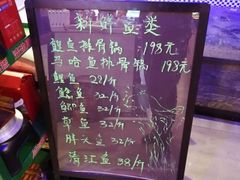 新鲜鱼类
鲶鱼排骨锅:198元
马哈鱼排骨锅:198元
鲤鱼 29/斤
鲶鱼 32/斤
鲫鱼 32/斤
草鱼 32/斤
胖头鱼 32/斤
清江鱼 38/斤